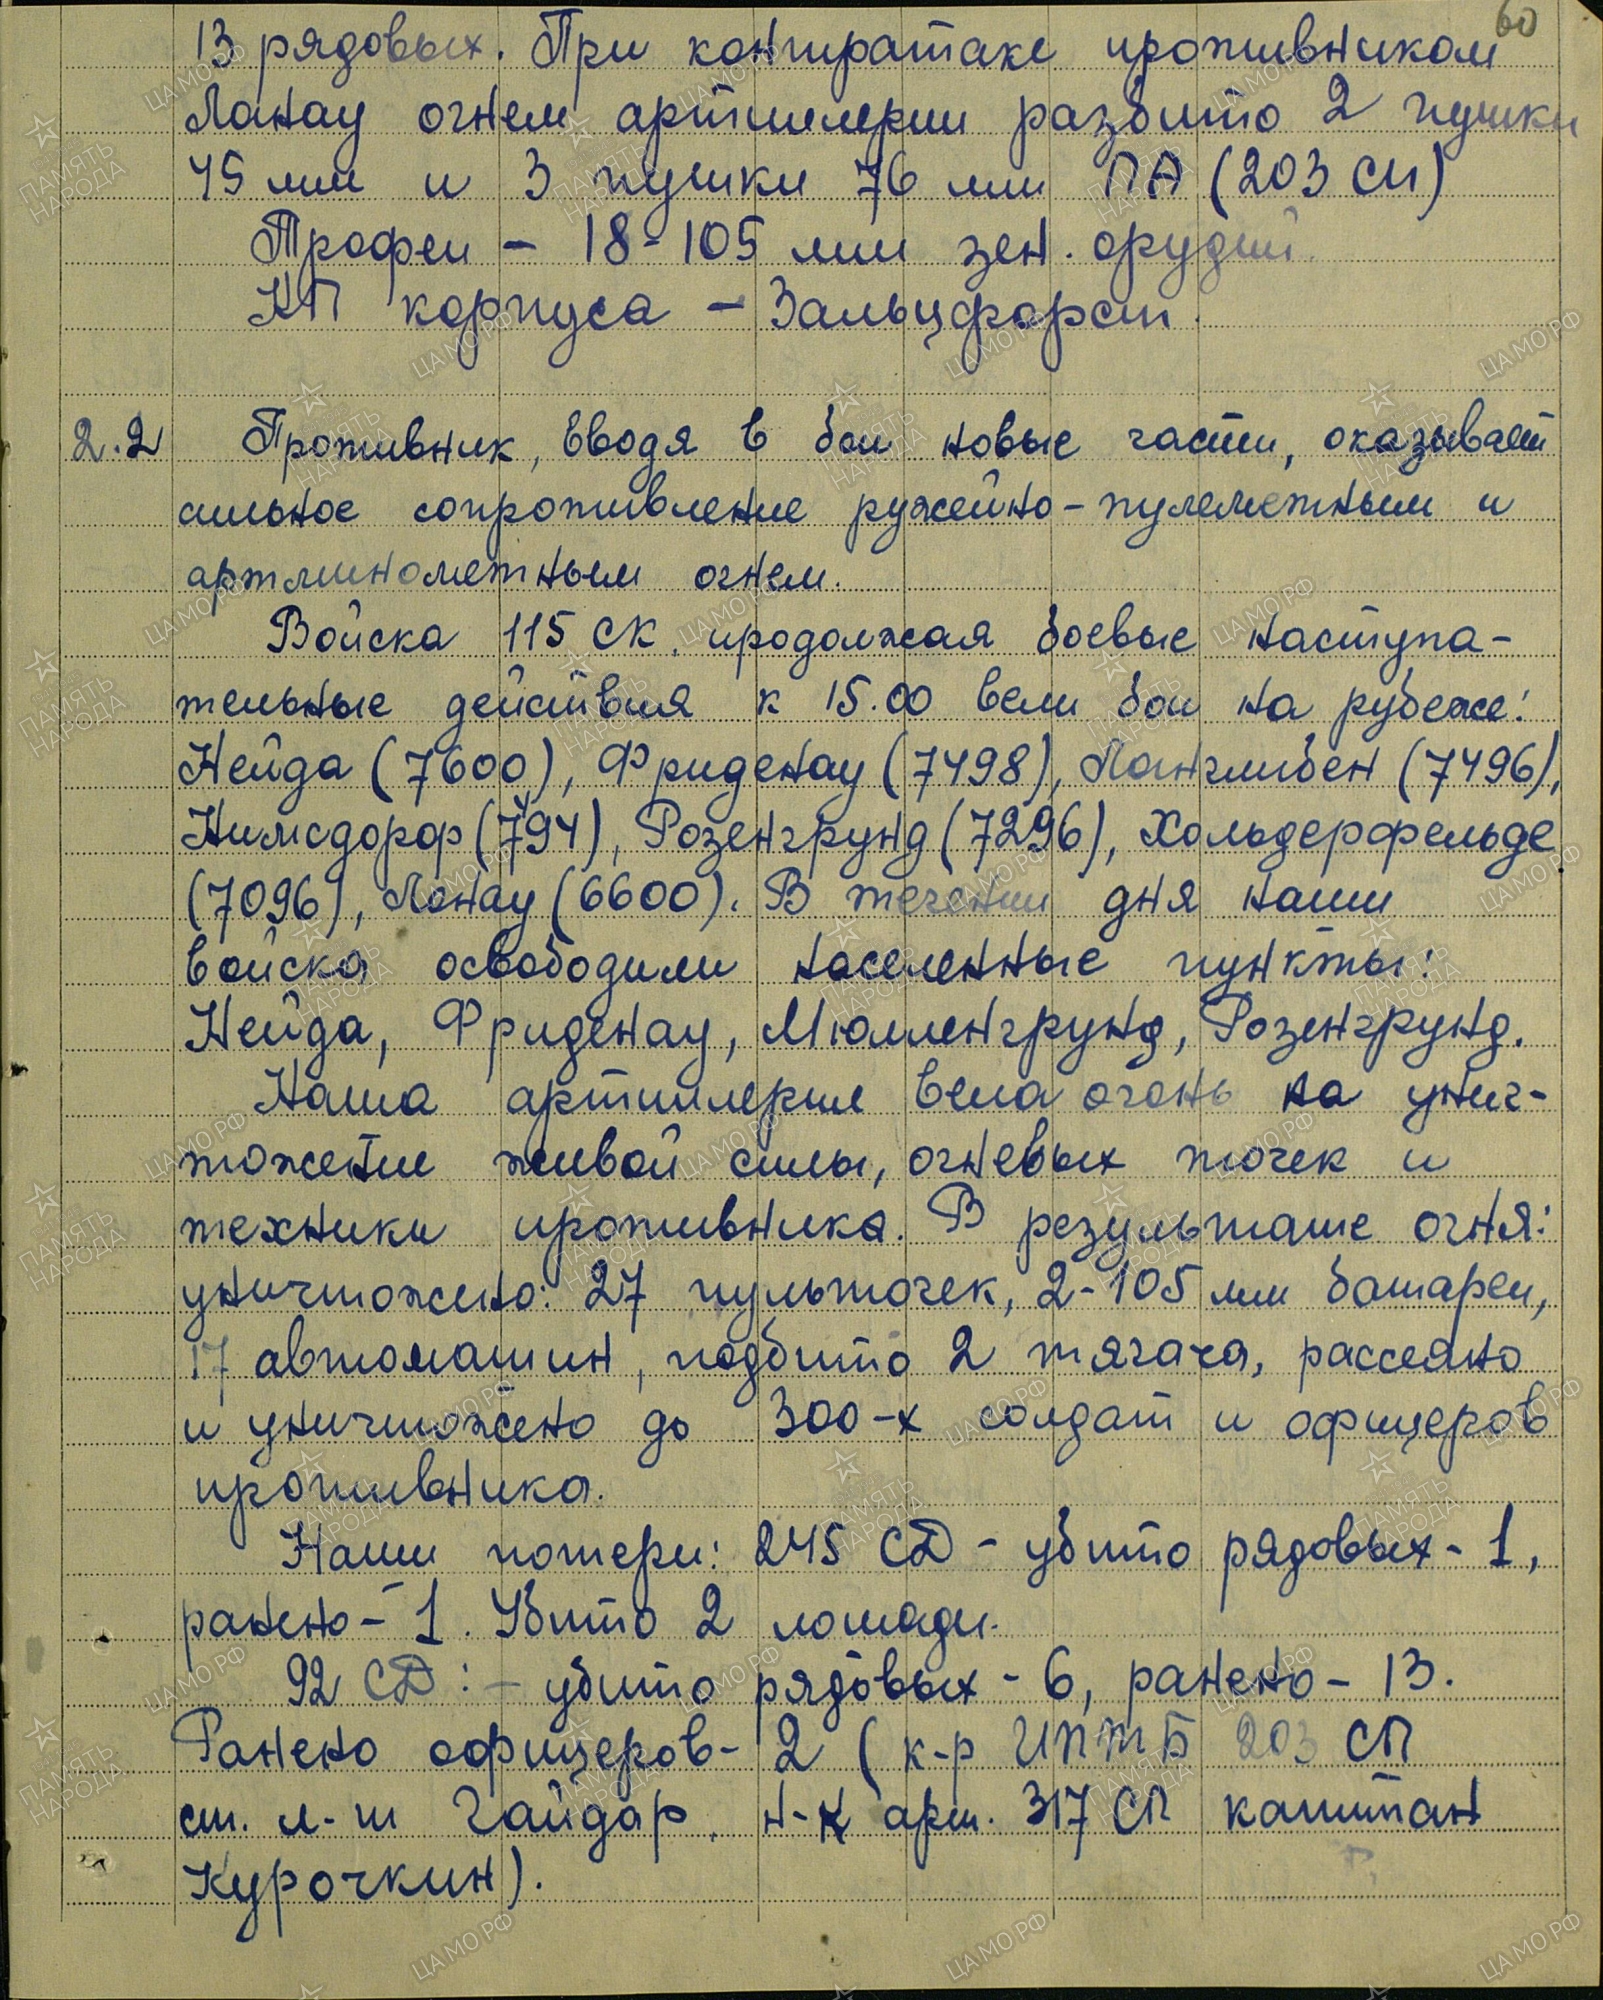 60
13 рядовых. При контратаке противником
Ланау огнем артиллерии разбито 2 пушки
45 мм и 3 пушки 76 мм ПА (203 СП)
Трофеи – 18-105 мм зен. орудий.
КП корпуса – Зальцфорст.
2.2 Противник, вводя в бой новые части, оказывает
сильное сопротивление ружейно-пулеметным и
артминометным огнем.
Войска 115 СК, продолжая боевые наступа-
тельные действия к 15.00 вели бои на рубеже:
Нейда (7600), Фриденау (7498), Ланглибен (7496),
Нимсдорф (7494), Розенгрунд (7296), Хольдерфельде
(7096), Ланау (6600). В течении дня наши
войска освободили населенные пункты:
Нейда, Фриденау, Мюлленгрунд, Розенгрунд.
Наша артиллерия вела огонь на унич-
тожение живой силы, огневых точек и
техники противника. В результате огня:
уничтожено: 27 пульточек, 2-105 мм батареи,
17 автомашин, подбито 2 тягача, рассеяно
и уничтожено до 300-х солдат и офицеров
противника.
Наши потери: 245 СД – убито рядовых – 1,
ранено – 1. Убито 2 лошади.
92 СД: – убито рядовых – 6, ранено – 13.
Ранено офицеров – 2 (к-р ИПТБ 203 СП
ст. л-т Гайдар, н-к арт. 317 СП капитан
Курочкин).